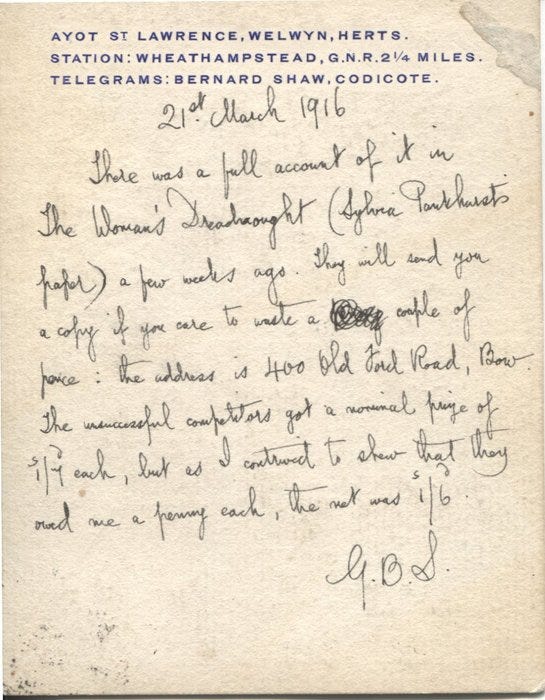 AYOT ST LAWRENCE, WELWYN, HERTS.
STATION: WHEATHAMPSTEAD, G.N.R. 2¼ MILES.
TELEGRAMS: BERNARD SHAW, CODICOTE.
21st March 1916
There was a full account of it in
The Woman's Dreadnought (Sylvia Pankhurst's
paper) a few weeks ago. They will send you
a copy if you care to waste a couple of
pence: the address is 400 Old Ford Road, Bow.
The unsuccessful competitors got a nominal prize of
s1/7d each, but as I contrived to shew that they
owed me a penny each, the net was s1/6d.
G.B.S.